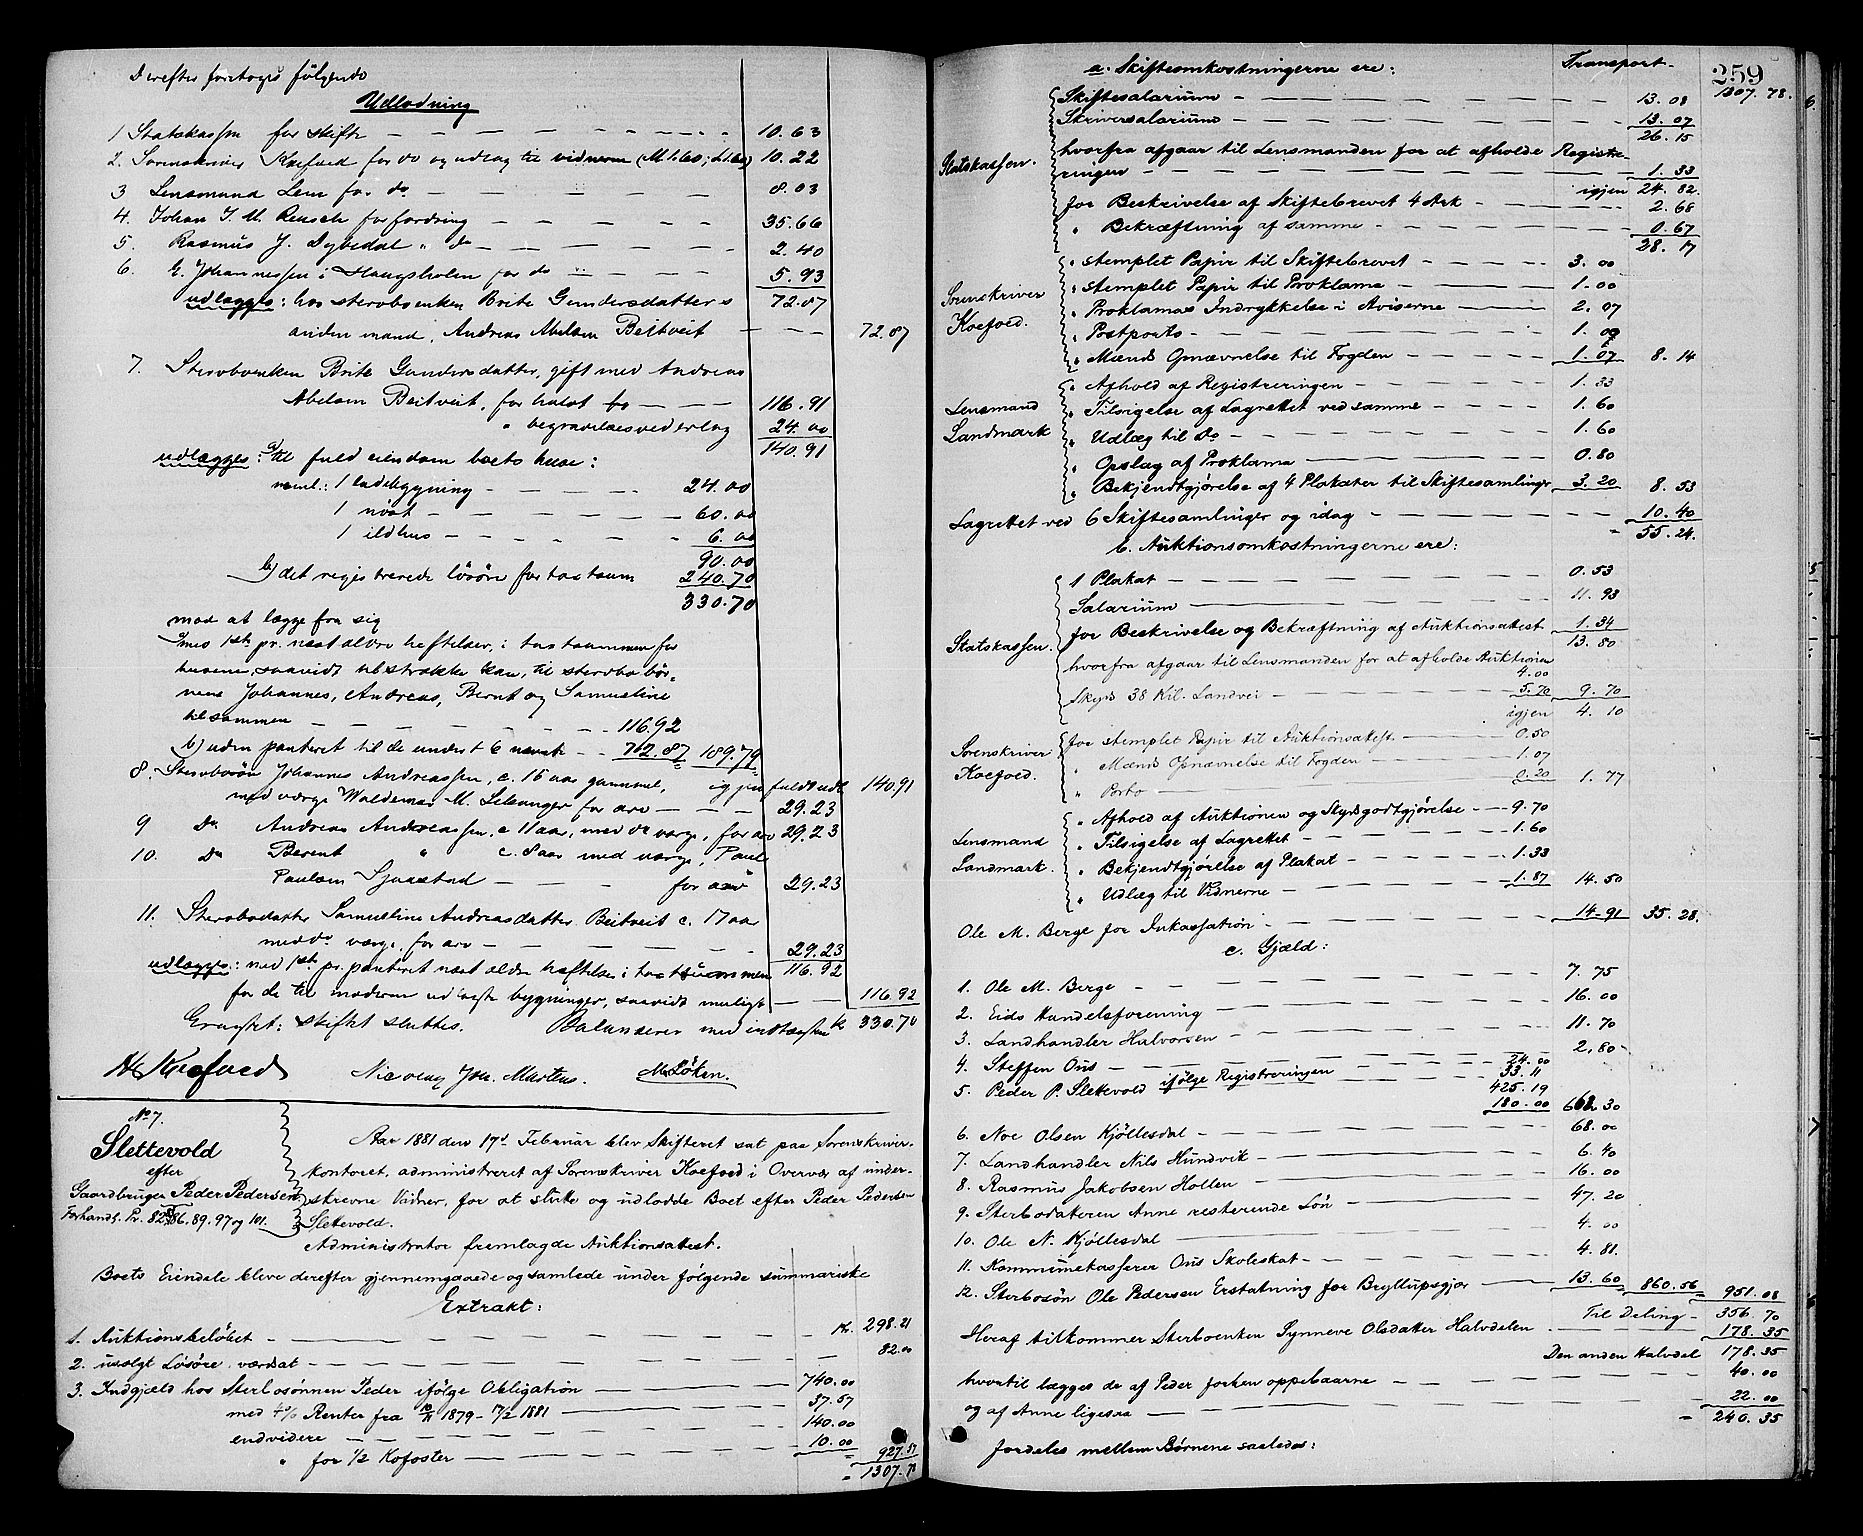 Derefter foretoges følgende
Udlodning
1 Statskassen for skifte 10.63
2. Sorenskriver Koefoed for do og udlæg til vidnerne 10.22
3 Lensmand Lem for do 8.03
4. Johan J. U. Reusch for fordring 35.66
5. Rasmus J. Dybedal " do 2.40
6. E. Johannessen i Haugsholen for do 5.93
udlægges: hos sterboenken Brite Gundersdatters 72.87
anden mand, Andreas Abelsen Beitveit 72.87
7. Sterboenken Brite Gundersdatter, gift med Andreas
Abelsen Beitveit, for halvt bo 116.91
" begravelsesvederlag 24.00
140.91
udlægges: a) til fuld eiendom boets huse:
neml.: 1 ladebygning 24.00
1 nøst 60.00
1 ildhus 6.00
90.00
b) det registrerede løsøre for taxtsum 240.70
330.70
mod at lægge fra sig
mod 1ste pr. næst ældre heftelser, i taxtsummen for
husene, saavidt tilstrække kan, til sterbobør-
nene Johannes, Andreas, Bernt og Samueline
tilsammen 116.92
b) uden panteret til de under 1-6 nævnte 72.87 189.79
igjen fuldt udl. 140.91
8. Sterbosøn Johannes Andreassen, c. 15 aar gammel,
med værge Waldemar M. Selvanger for arv 29.23
9 Do Andreas Andreassen, c. 11 aar, med do værge, for arv 29.23
10. Do Berent " c. 8 aar med værge, Paul
Paulsen Sjaastad for arv 29.23
11. Sterbodatter Samueline Andreasdatter Beitveit c. 17 aar
med do værge, for arv 29.23
udlægges: med 1ste pr. panteret næst ældre heftelse i taxtsummen 116.92
for de til moderen udlagte bygninger, saavidt muligt 116.92
Eragtet: skiftet sluttes. Balancerer med indtægten k 330.70
H Koefoed Nicolay Joh. Martens. M Løken.
No 7.
Slettevold
efter
Gaardbruger Peder Pedersen
Forhandl. Pr. 82, 86, 89, 97 og 101.
Aar 1881 den 17de Februar blev Skifteret sat paa Sorenskriver-
kontoret, administreret af Sorenskriver Koefoed i Overvær af under-
skrevne Vidner, for at slutte og udlodde Boet efter Peder Pedersen
Slettevold.
Administrator fremlagde Auktionsattest.
Boets Eiendele bleve derefter gjennemgaaede og samlede under følgende summariske
Extrakt:
1. Auktionsbeløbet k. 298.21
2. usolgt Løsøre, værdsat 82.00
3. Indgjæld hos Sterbosønnen Peder ifølge Obligation 740.00
med 4% Renter fra 10/11 1879 - 17/2 1881 37.57
endvidere 140.00
" for 1/2 Kofoster 10.00 927.57
1307.78
259
Transport 1307.78.
a. Skifteomkostningerne ere:
Statskassen.
Skiftesalarium 13.08
Skriversalarium 13.07
26.15
hvorfra afgaar til Lensmanden for at afholde Registre-
ringen 1.33
igjen 24.82.
for Beskrivelse af Skiftebrevet 4 Ark 2.68
" Bekræftning af samme 0.67
28.17
Sorenskriver
Koefoed.
" stemplet Papir til Skiftebrevet 3.00
" stemplet Papir til Proklama 1.00
" Proklamas Indrykkelse i Aviserne 2.07
" Postporto 1.00
" Mænds Opnævnelse til Fogden 1.07 8.14
Lensmand
Landmark
" Afhold af Registreringen 1.33
" Tilsigelse af Lagrettet ved samme 1.60
" Udlæg til Do 1.60
" Opslag af Proklama 0.80
" Bekjendtgjørelse af 4 Plakater til Skiftesamlinger 3.20 8.53
Lagrettet ved 6 Skiftesamlinger og idag 10.40
55.24.
b. Auktionsomkostningerne ere:
Statskassen.
1 Plakat 0.53
Salarium 11.93
for Beskrivelse og Bekræftning af Auktionsattest 1.34
13.80
hvorfra afgaar til Lensmanden for at afholde Auktionen
4.00
Skyds 38 Kil. Landvei 5.70 9.70
igjen 4.10
Sorenskriver
Koefoed.
for stemplet Papir til Auktionsattest 0.50
" Mænds Opnævnelse til Fogden 1.07
" Porto 0.20 1.77
Lensmand
Landmark.
" Afhold af Auktionen og Skydsgodtgjørelse 9.70
" Tilsigelse af Lagrettet 1.60
" Bekjendtgjørelse af Plakat 1.33
" Udlæg til Vidnerne 1.87 14.50
Ole M. Berge for Inkassation 14.91 35.28.
c. Gjæld:
1. Ole M. Berge 7.75
2. Eids Handelsforening 16.00
3. Landhandler Halvorsen 11.70
4. Steffen Ous 2.80
5. Peder P. Slettevold ifølge Registreringen 24.00
33.11
425.19
180.00 662.30
6. Noe Olsen Kjøllesdal 68.00
7. Landhandler Nils Hundvik 6.40
8. Rasmus Jakobsen Hollen 16.00
9. Sterbodatteren Anne resterende Løn 47.20
10. Ole N. Kjøllesdal 4.00
11. Kommunekasserer Ous Skoleskat 4.81.
12. Sterbosøn Ole Pedersen Erstatning for Bryllupsgjør 13.60 860.56 951.08
Til Deling 356.70
Heraf tilkommer Sterboenken Synneve Olsdatter Halvdelen 178.35
Den anden Halvdel 178.35
hvortil lægges de af Peder forhen oppebaarne 40.00
og af Anne ligesaa 22.00
240.35
fordeles mellem Børnene saaledes: